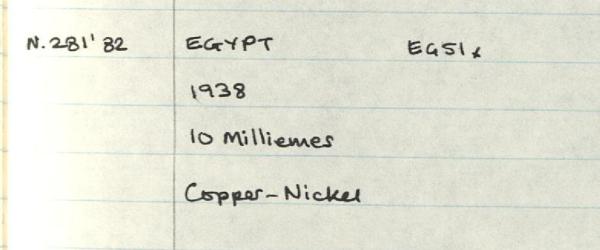 N.281'82 EGYPT EG51x
1938
10 Milliemes
Copper-Nickel